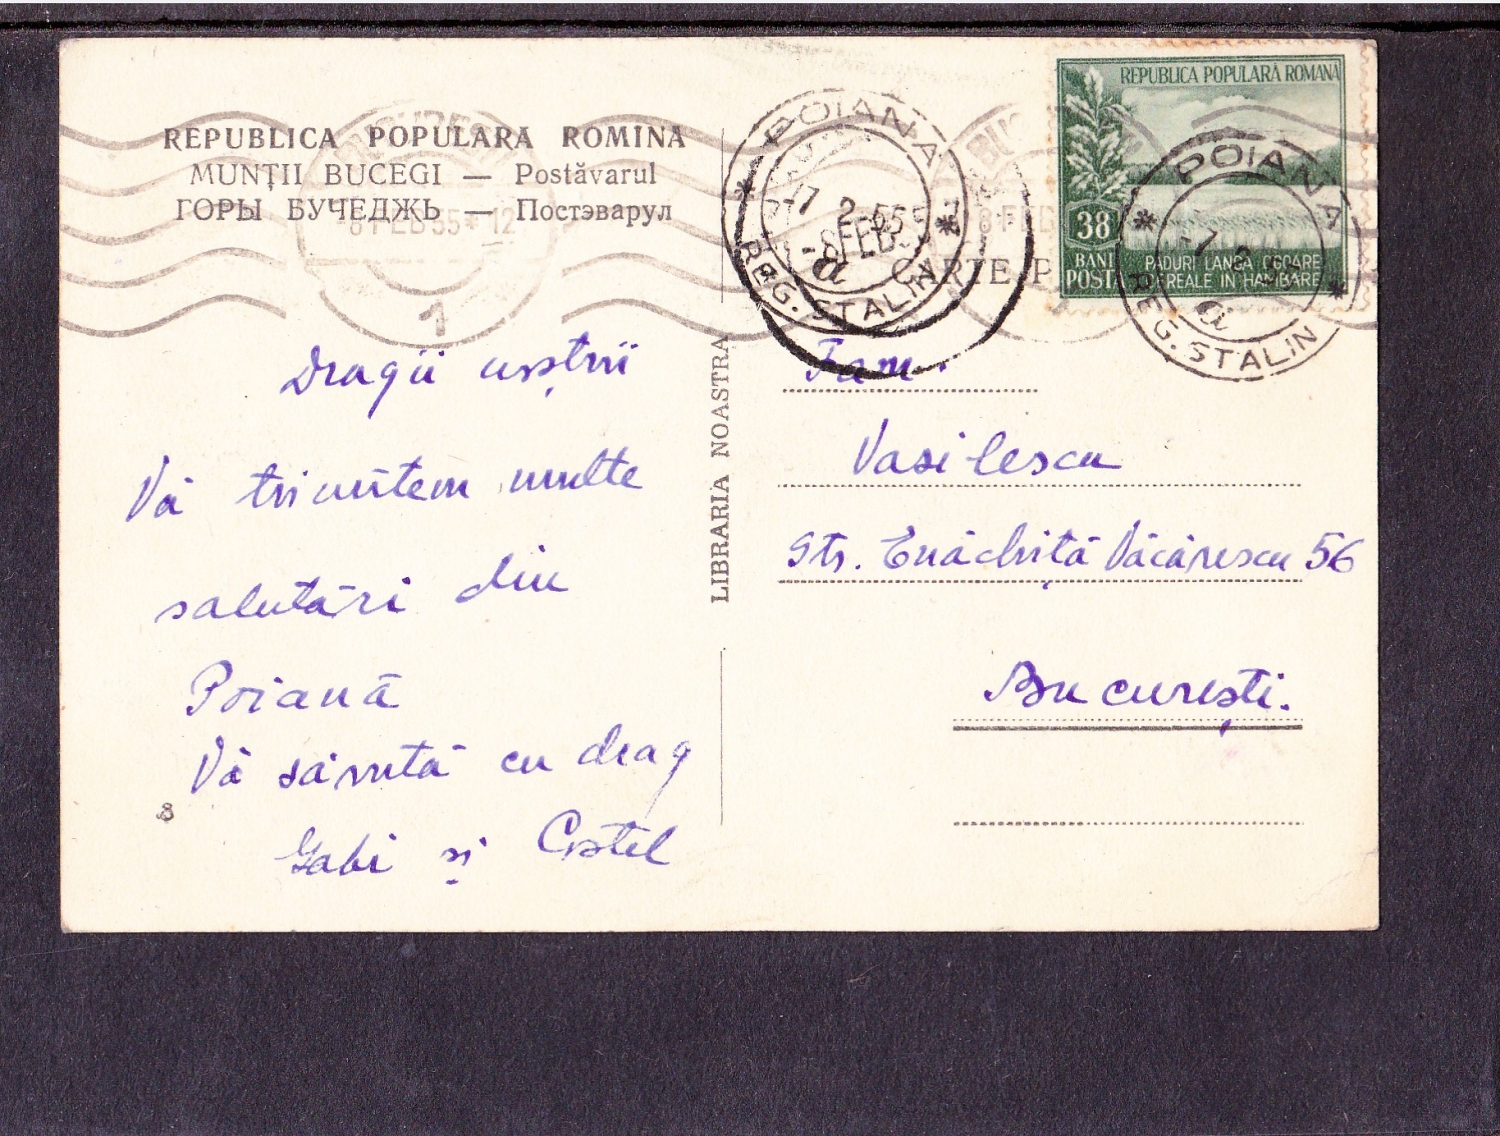 REPUBLICA POPULARA ROMINA
MUNȚII BUCEGI — Postăvarul
ГОРЫ БУЧЕДЖЬ — Постэварул
8 FEB 55 - 12
1
Dragii noștrii
Vă trimitem multe
salutări din
Poiană
Vă sărută cu drag
Gabi și Costel
8
LIBRARIA NOASTRA
POIANA
-7 2 55
-8 FEB. 55
a
REG. STALIN
CARTE P
REPUBLICA POPULARĂ ROMÂNĂ
38
BANI
POSTA
PĂDURI LÂNGĂ OGOARE
CEREALE IN HAMBARE
POIANA
-7 2
a
REG. STALIN
Fam.
Vasilescu
Str. Enăchiță Văcărescu 56
București.